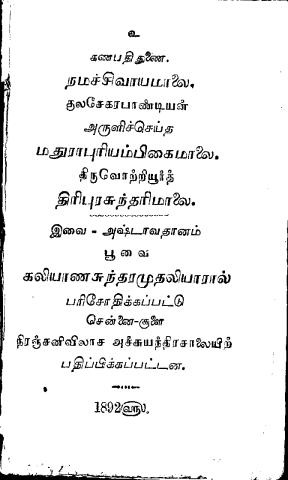 உ
கணபதிதுணை.
நமச்சிவாயமாலை,
குலசேகரபாண்டியன்
அருளிச்செய்த
மதுராபுரியம்பிகைமாலை.
திருவொற்றியூர்த்
திரிபுரசுந்தரிமாலை.
இவை - அஷ்டாவதானம்
பூவை
கலியாணசுந்தரமுதலியாரால்
பரிசோதிக்கப்பட்டு
சென்னை-சூளை
நிரஞ்சனிவிலாச அச்சுயந்திரசாலையிற்
பதிப்பிக்கப்பட்டன.
1892௵.